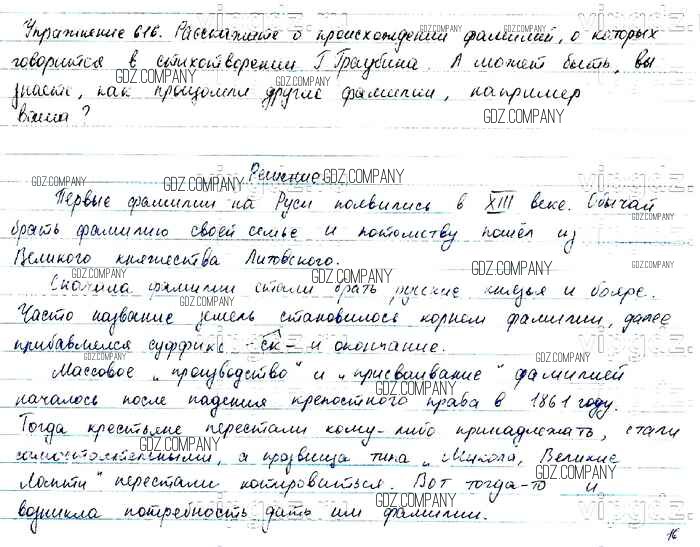 Упражнение 616. Расскажите о происхождении фамилий, о которых
говорится в стихотворении Г Граубина. А может быть, вы
знаете, как произошли другие фамилии, например
ваша?
Решение
Первые фамилии на Руси появились в XIII веке. Обычай
брать фамилию своей семье и потомству пошёл из
Великого княжества Литовского.
Сначала фамилии стали брать русские князья и бояре.
Часто название земель становилось корнем фамилии, далее
прибавлялся суффикс -ск- и окончание.
Массовое "производство" и "присваивание" фамилией
началось после падения крепостного права в 1861 году.
Тогда крестьяне перестали кому-либо принадлежать, стали
самостоятельными, а прозвища типа "Микола, Великие
Лапти" перестали котироваться. Вот тогда-то и
возникла потребность дать им фамилии.
16